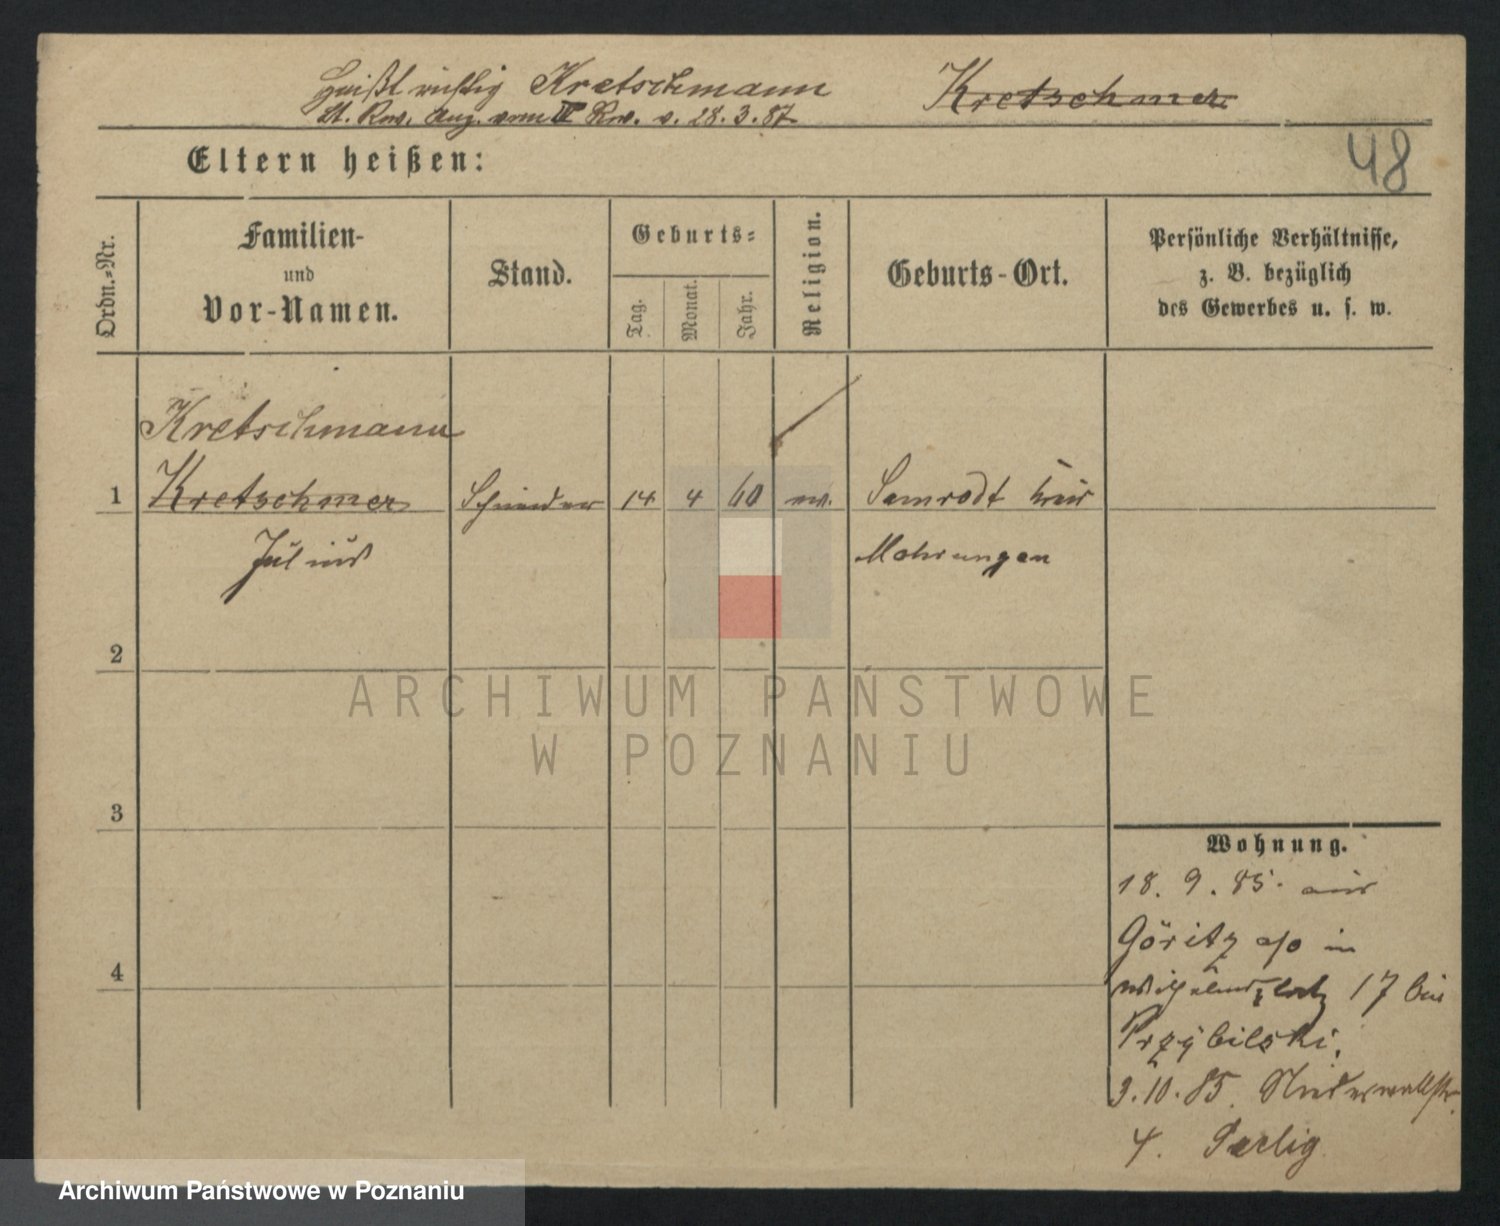 heißt richtig Kretschmann Kretschmer
lt. Rev. Anz. vom III Rev. v. 28.3.87.
48
Eltern heißen:
Ordn.-Nr.
Familien-
und
Vor-Namen.
Stand.
Geburts-
Tag.
Monat.
Jahr.
Religion.
Geburts-Ort.
Persönliche Verhältnisse,
z. B. bezüglich
des Gewerbes u. s. w.
Kretschmann
1 Kretschmer Schneider 14 4 60 ev. Samrodt Kreis
Julius Mohrungen
2
ARCHIWUM PAŃSTWOWE
W POZNANIU
3
Wohnung.
18. 9. 85. aus
Göritz a/o in
Wilhelmsplatz 17 bei
4
Przybilski.
3.10.85. Niederwallstr.
4.
Archiwum Państwowe w Poznaniu